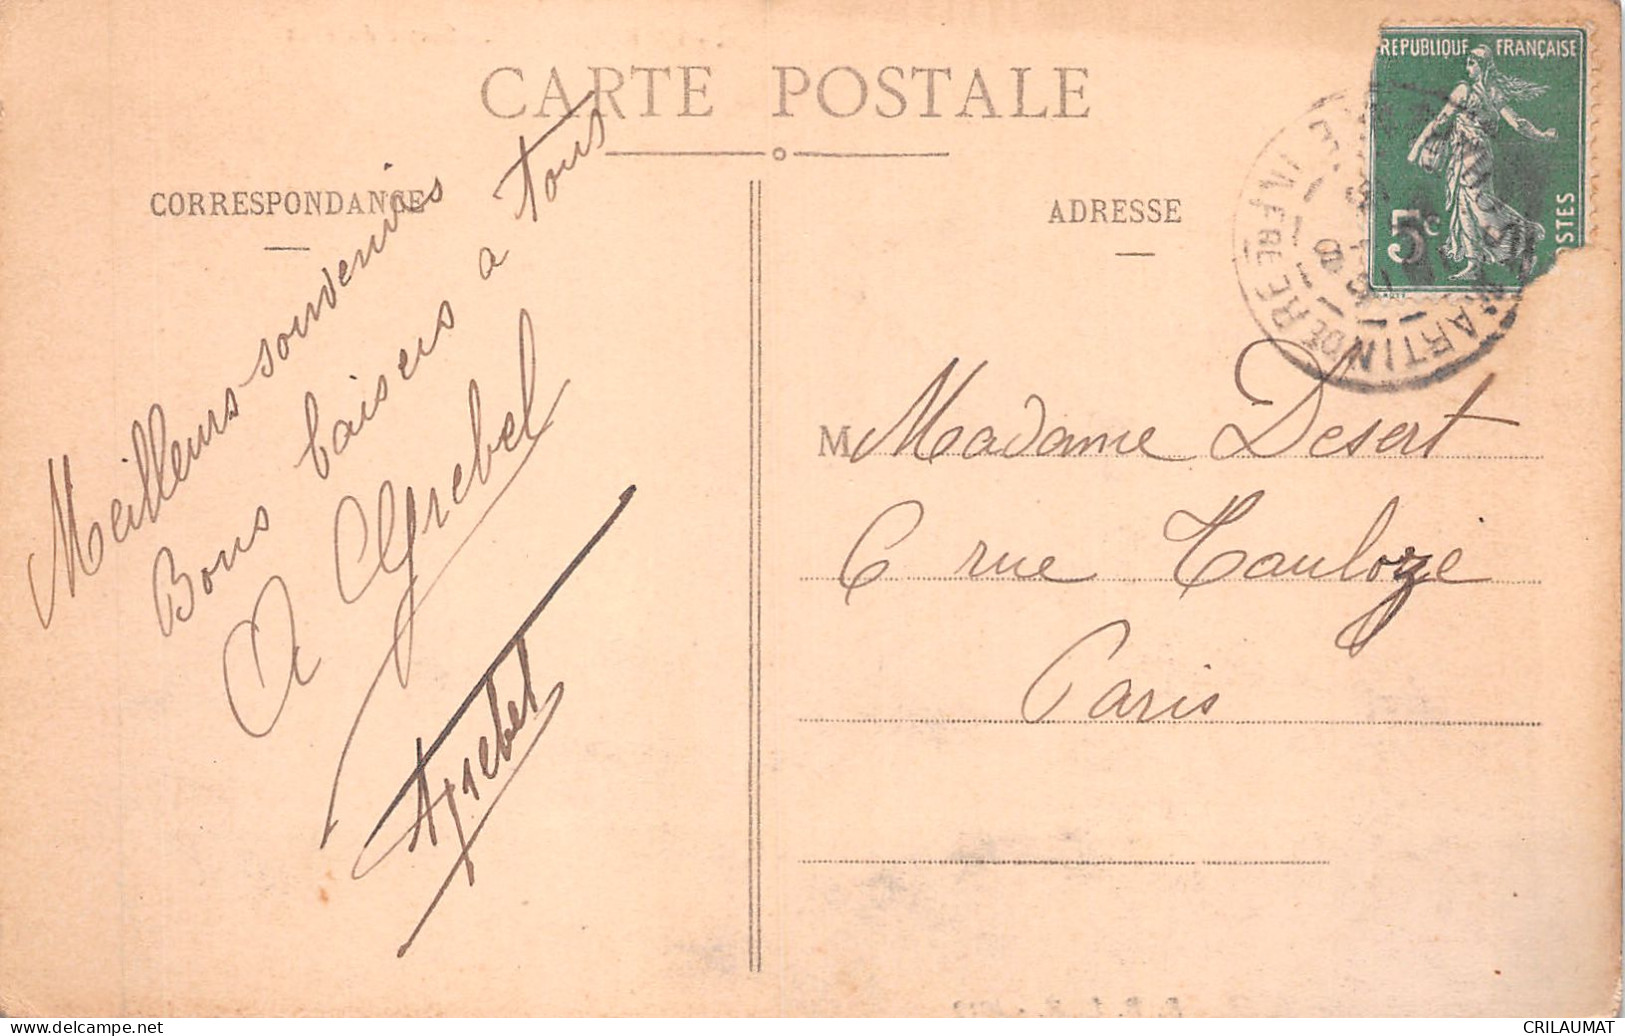 CARTE POSTALE
CORRESPONDANCE
Meilleurs souvenirs
Bons baisers a tous
A Grebel
Agrebel
ADRESSE
REPUBLIQUE FRANÇAISE
5c
POSTES
MARTIN DE RE
INFRE
M Madame Desert
6 rue Tauloze
Paris
CRILAUMAT